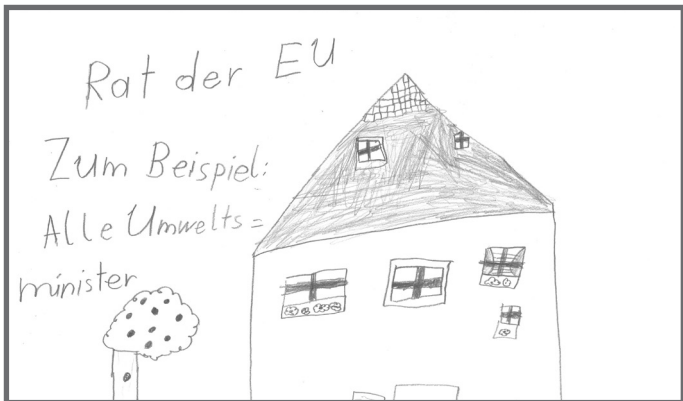 Rat der EU
Zum Beispiel:
Alle Umwelts=
minister